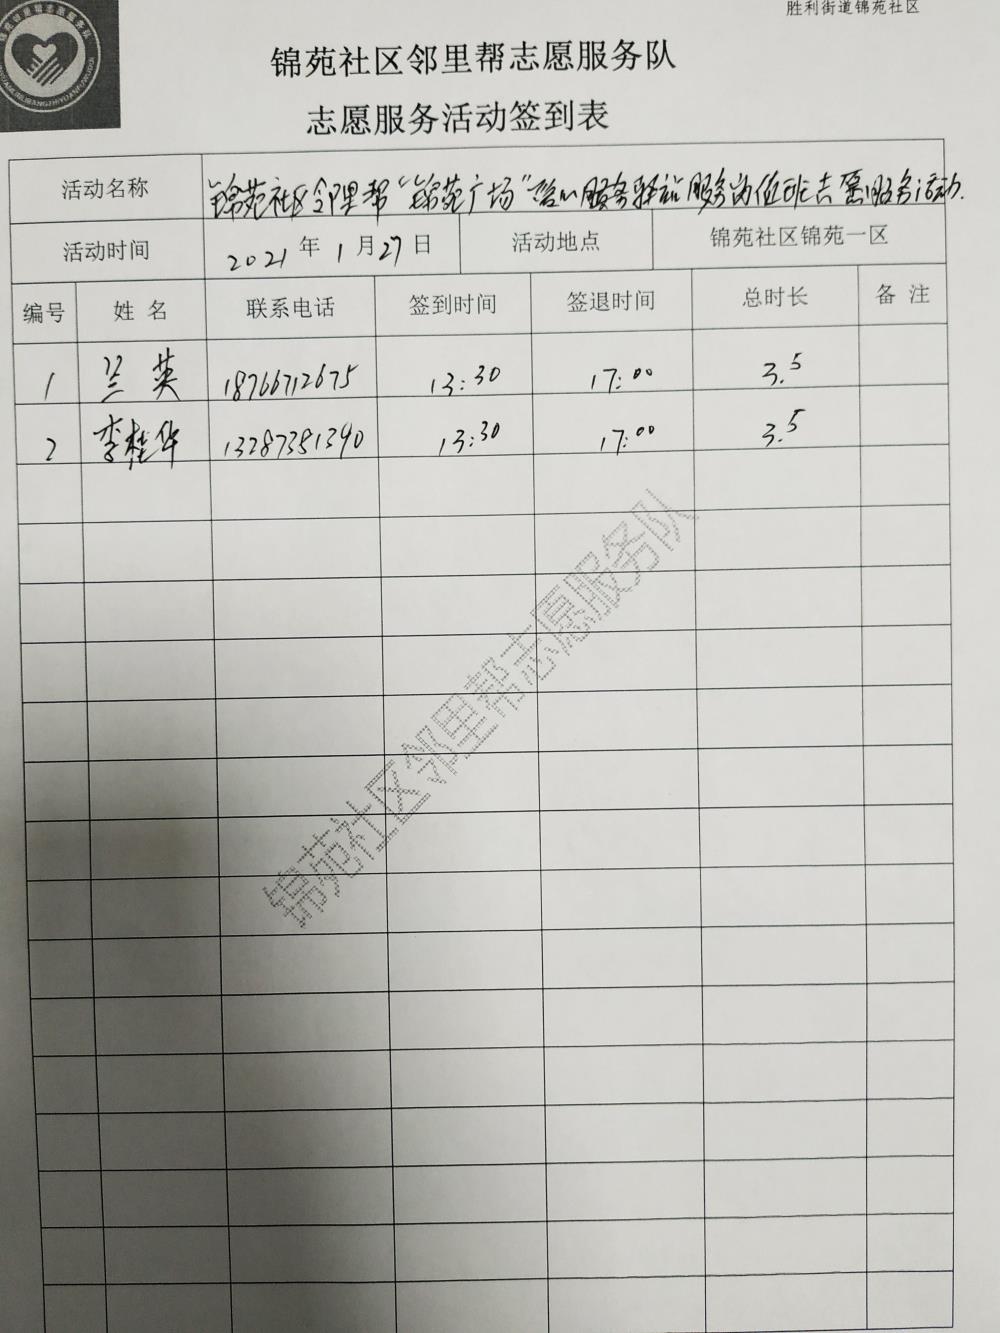 胜利街道锦苑社区
锦苑社区邻里帮志愿服务队
志愿服务活动签到表
活动名称 锦苑社区邻里帮“锦苑广场”暖心服务驿站服务岗值班志愿服务活动.
活动时间 2021年1月27日 活动地点 锦苑社区锦苑一区
编号 姓名 联系电话 签到时间 签退时间 总时长 备注
1 兰英 18766712675 13:30 17:00 3.5
2 李桂华 13287381390 13:30 17:00 3.5
锦苑社区邻里帮志愿服务队